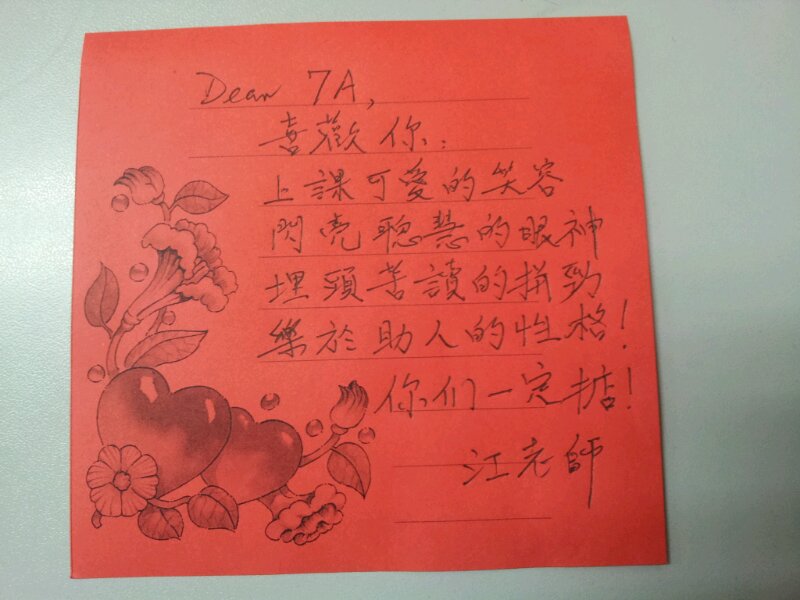 Dear 7A,
喜歡你:
上課可愛的笑容
閃亮聰慧的眼神
埋頭苦讀的拼勁
樂於助人的性格!
你们一定掂!
江老師